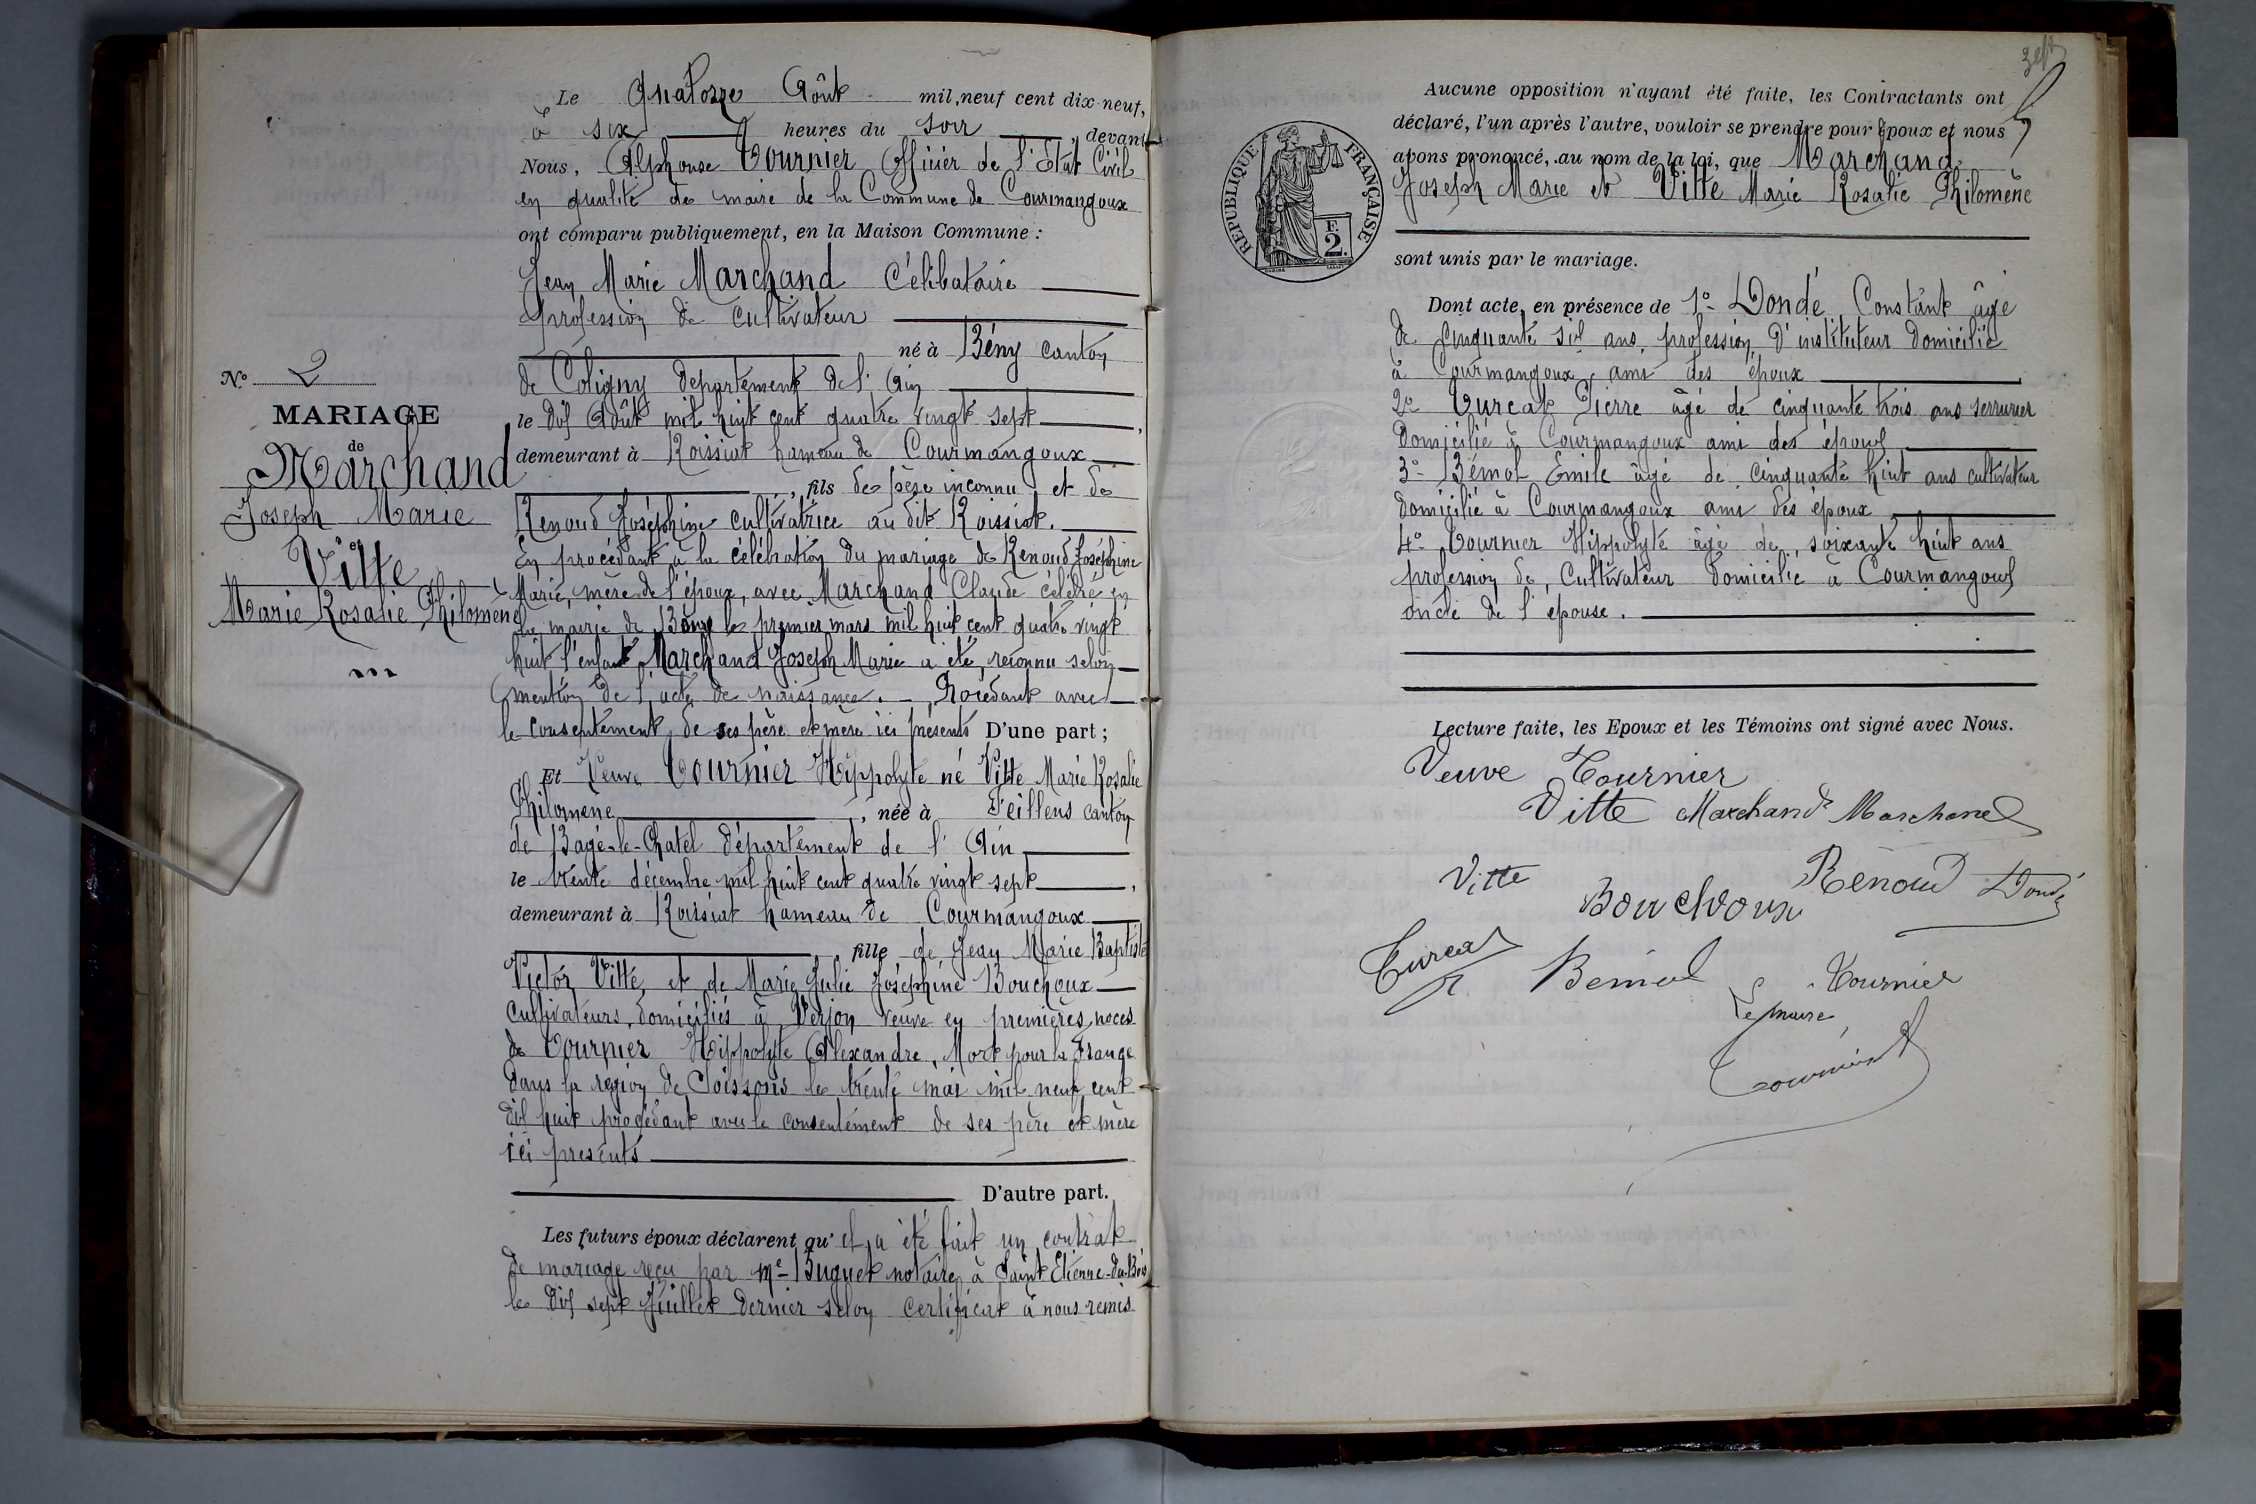 N° 2
MARIAGE
de
Marchand
Joseph Marie
et
Vitte
Marie Rosalie Philomène
Le Quatorze Août mil neuf cent dix-neuf,
à six heures du soir, devant
Nous, Alphonse Tournier Officier de l'Etat Civil
en qualité de maire de la Commune de Courmangoux
ont comparu publiquement, en la Maison Commune :
Jean Marie Marchand Célibataire
profession de cultivateur
né à Bény canton
de Coligny département de l'Ain
le dix Août mil huit cent quatre vingt sept,
demeurant à Roissiat hameau de Courmangoux
, fils de père inconnu et de
Renoud Joséphine cultivatrice au dit Roissiat.
En procédant à la célébration du mariage de Renoud Joséphine
Marie, mère de l'époux, avec Marchand Claude célébré en
la mairie de le premier mars mil huit cent quatre vingt
huit l'enfant Marchand Joseph Marie a été reconnu selon
mention de l'acte de naissance. – Procédant avec
le consentement de ses père et mère ici présents D'une part ;
Et Veuve Tournier Hippolyte né Vitte Marie Rosalie
Philomène, née à Feillens canton
de Bagé-le-Chatel département de l'Ain
le trente décembre mil huit cent quatre vingt sept,
demeurant à Roissiat hameau de Courmangoux
, fille de Jean Marie Baptiste
Victor Vitte et de Marie Julie Joséphine Bouchoux
cultivateurs domiciliés à Verjon veuve en premières noces
de Tournier Hippolyte Alexandre, Mort pour la France
dans la région de Soissons le trente mai mil neuf cent
dix huit procédant avec le consentement de ses père et mère
ici présents
D'autre part.
Les futurs époux déclarent qu'il a été fait un contrat
de mariage reçu par Me Buguet notaire à Saint Etienne-du-Bois
le dix sept Juillet dernier selon certificat à nous remis
REPUBLIQUE FRANÇAISE
F.
2.
Aucune opposition n'ayant été faite, les Contractants ont
déclaré, l'un après l'autre, vouloir se prendre pour Epoux et nous
avons prononcé, au nom de la loi, que Marchand
Joseph Marie et Vitte Marie Rosalie Philomène
sont unis par le mariage.
Dont acte, en présence de 1° Dondé Constant âgé
de cinquante six ans, profession d'instituteur domicilié
à Courmangoux ami des époux
2° Turcat Pierre âgé de cinquante trois ans serrurier
domicilié à Courmangoux ami des époux
3° Bémol Emile âgé de cinquante huit ans cultivateur
domicilié à Courmangoux ami des époux
4° Tournier Hippolyte âgé de soixante huit ans
profession de cultivateur domicilié à Courmangoux
oncle de l'épouse.
Lecture faite, les Epoux et les Témoins ont signé avec Nous.
Veuve Tournier
Vitte Marchand Marchand
Vitte Bouchoux Renoud Dondé
Turcat Bémol Tournier
Le maire
Tournier